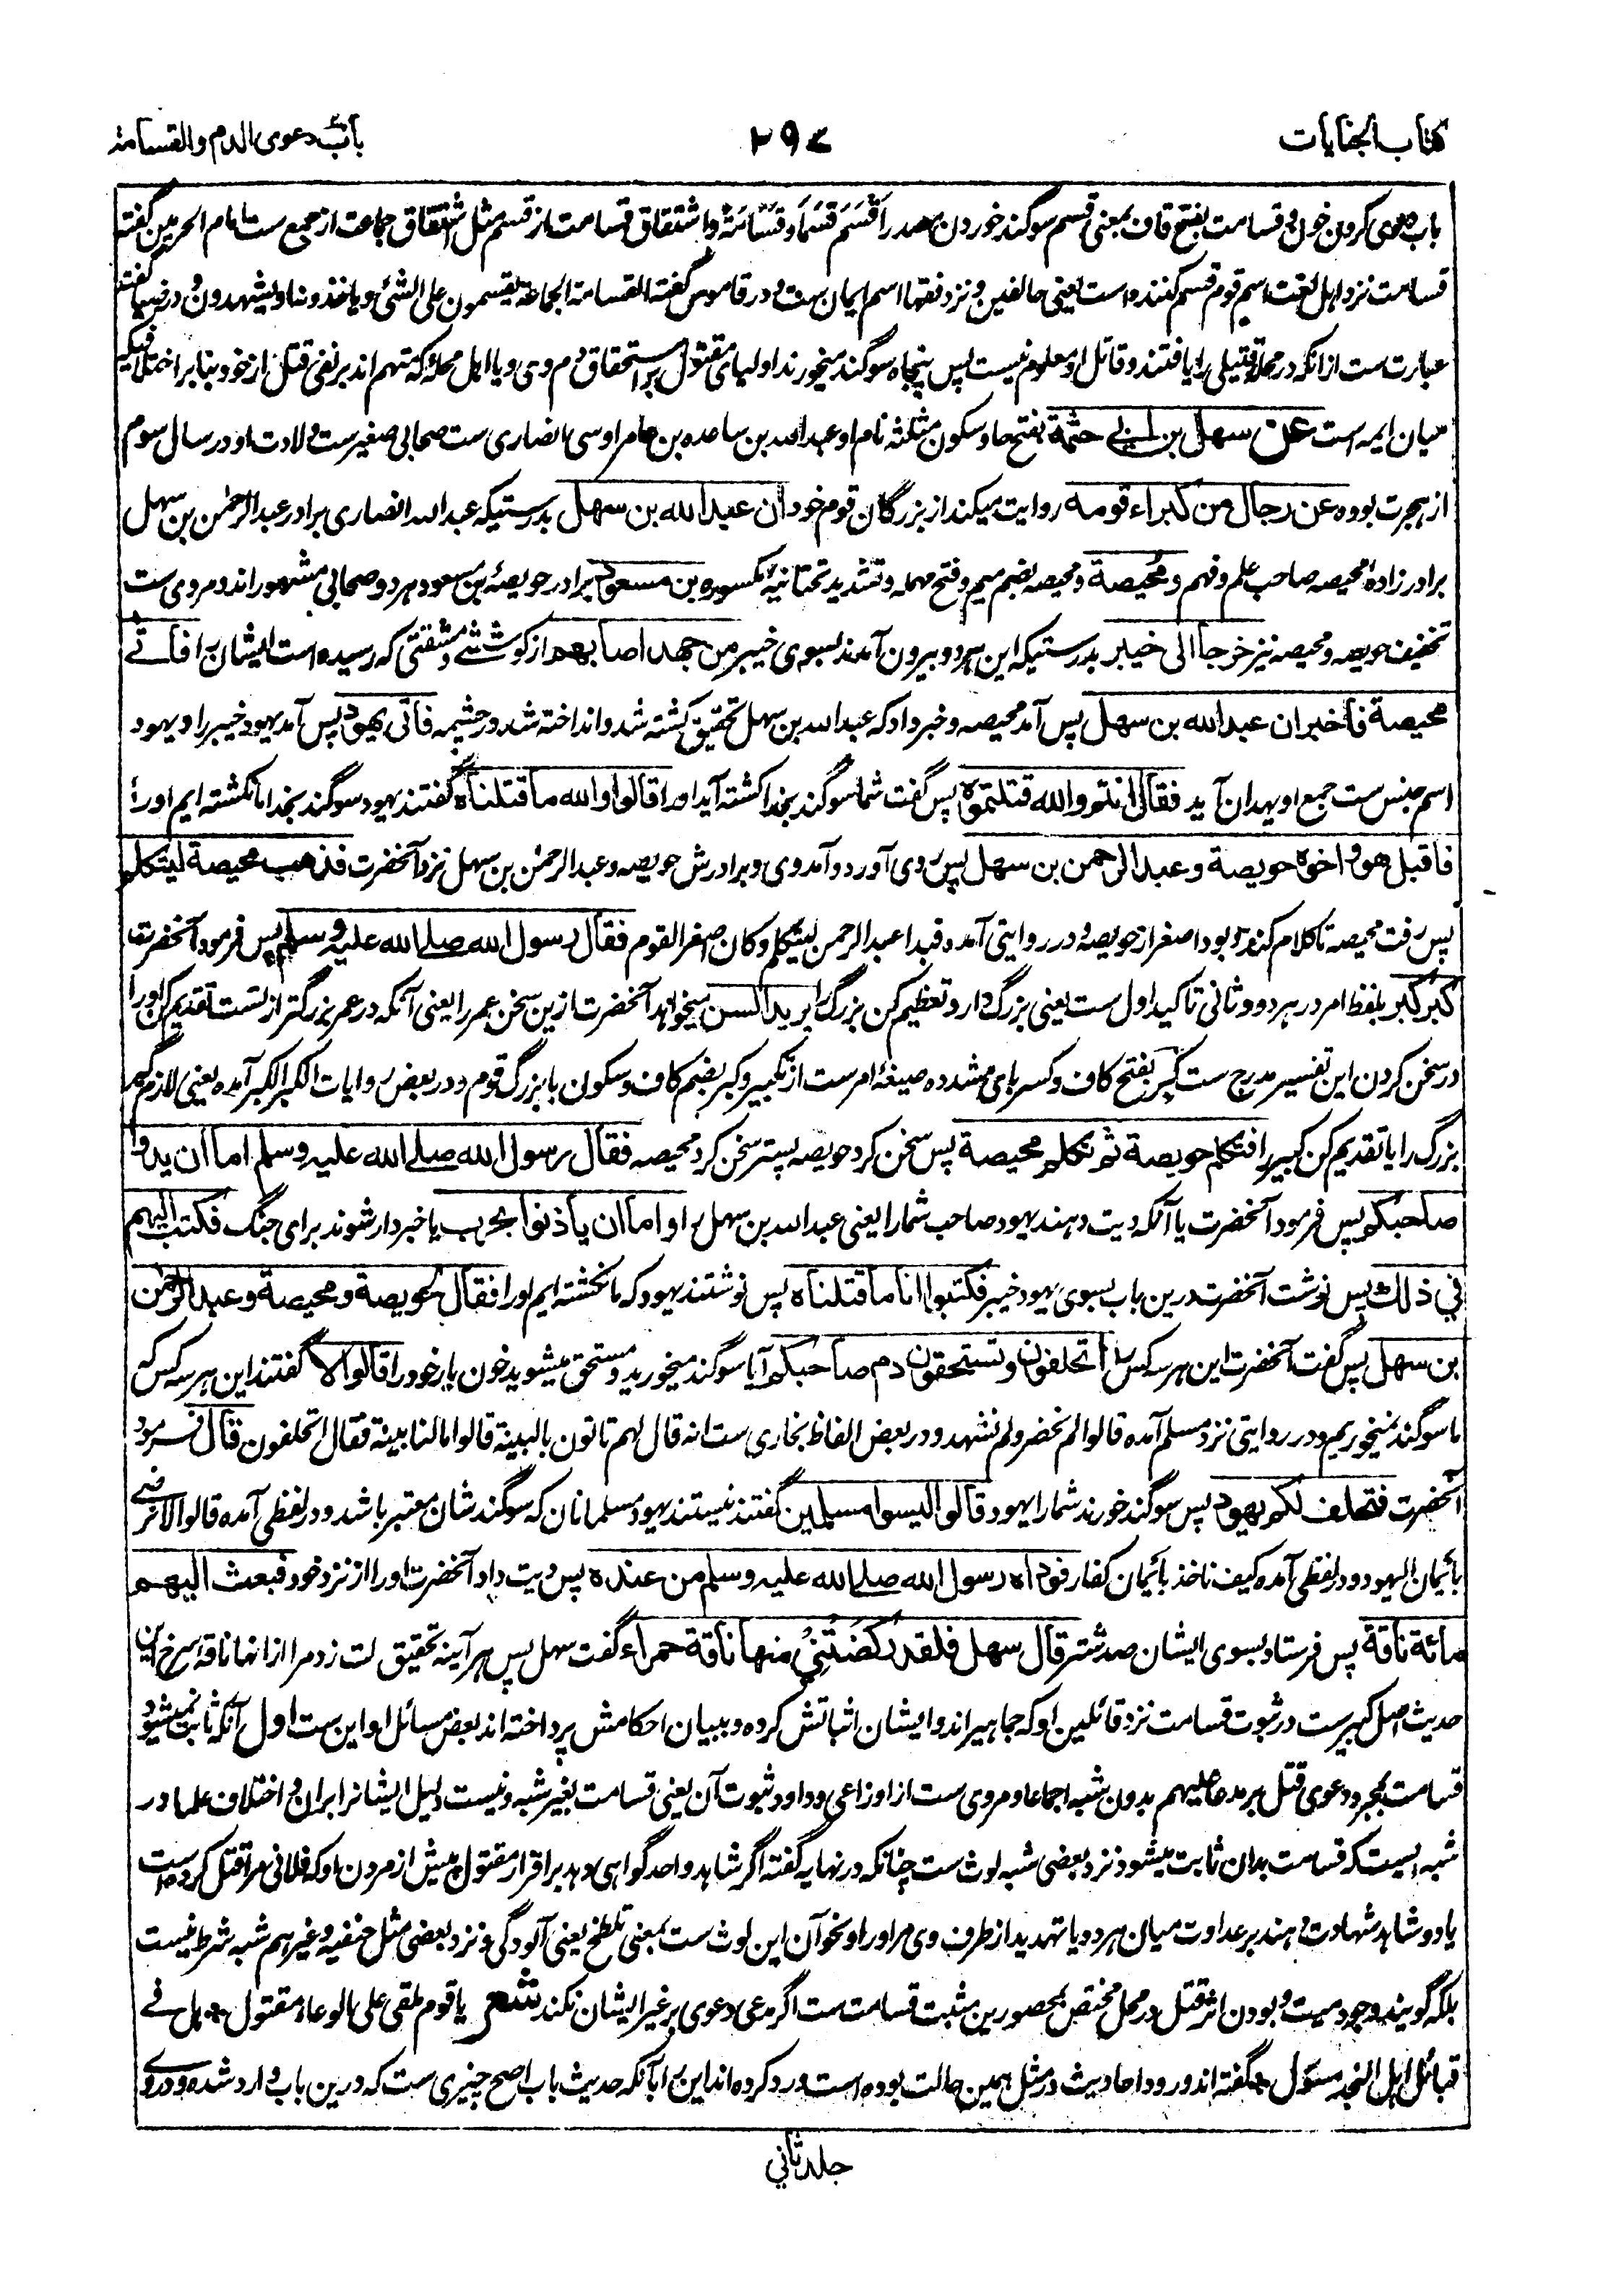 كتاب الجنايات
۲۹۷
باب دعوى الدم والقسامة
باب دعوی کردن خون و قسامت بفتح قاف بمعنی قسم سوگند خوردن مصدر اَقْسَمَ قَسَمًا وَقَسَامَةً و اشتقاق قسامت از قسم مثل اشتقاق جماعت از جمع ست امام الحرمین گفته
قسامت نزد اهل لغت اسم قوم قسم کننده است یعنی حالفین و نزد فقها اسم ایمان ست و در قاموس گفته القسامة الجماعة یقسمون علی الشئ و یاخذونه او یشهدون و در ضیا گفته
عبارت ست از انکه در محله قتیلی را یافتند و قاتل او معلوم نیست پس پنجاه سوگند میخورند اولیای مقتول بر استحقاق دم وی و یا اهل محله که متهم اند بر نفی قتل از خود بنا بر اختلافیکه
میان ایمه است عن سهل بن ابي حثمة بفتح حا و سکون مثلثه نام او عبدالله بن ساعده بن عامر اوسی انصاری ست صحابی صغیر ست ولادت او در سال سوم
از هجرت بوده عن رجال من كبراء قومه روایت میکند از بزرگان قوم خود ان عبد الله بن سهل بدرستیکه عبدالله انصاری برادر عبدالرحمٰن بن سهل
برادر زاده محیصه صاحب علم و فهم و مُحَيصة و محیصه بضم میم و فتح مهمله و تشدید تحتانیهٔ مکسوره بن مسعود برادر حویصهٔ بن مسعود هر دو صحابی مشهور اند و مروی ست
تخفیف حویصه و محیصه نیز خرجا الى خيبر بدرستیکه این هر دو بیرون آمدند بسوی خیبر من جهد اصابهم از کوششے و مشقتی که رسیده است ایشان را فاُتي
محيصة فاخبر ان عبد الله بن سهل پس آمد محیصه و خبر داد که عبدالله بن سهل تحقیق کشته شد و انداخته شد در چشمه فاتى يهود پس آمد یهود خیبر را و یهود
اسم جنس ست جمع او یهدان آید فقال انتم والله قتلتموه پس گفت شما سوگند بخدا کشته آید او را قالوا والله ما قتلناه گفتند یهود سوگند بخدا ما نکشته ایم او را
فاقبل هو واخوه حويصة وعبد الرحمن بن سهل پس روی آورد و آمد وی و برادرش حویصه و عبدالرحمٰن بن سهل نزد آنحضرت فذهب محيصة ليتكلم
پس رفت محیصه تا کلام کند و بود اصغر از حویصه و در روایتی آمده فبدا عبدالرحمن لیتکلم و کان اصغر القوم فقال رسول الله صلى الله عليه وسلم پس فرمود آنحضرت
كبّر كبّر بلفظ امر در هر دو و ثانی تاکید اول ست یعنی بزرگ دار و تعظیم کن بزرگ را يريد السن میخواهد آنحضرت ازین سخن عمر را یعنی آنکه در عمر بزرگتر از تست تقدیم کن او را
در سخن کردن این تفسیر مدرج ست کبّر بفتح کاف و کسر بای مشدده صیغهٔ امر ست از تکبیر و کبر بضم کاف و سکون با بزرگ قوم و در بعض روایات الکبر الکبر آمده یعنی لازم گیر
بزرگ را یا تقدیم کن کبیر را فتكلم حويصة ثم تكلم محيصة پس سخن کرد حویصه پستر سخن کرد محیصه فقال رسول الله صلى الله عليه وسلم اما ان يدوا
صاحبكم پس فرمود آنحضرت یا آنکه دیت دهند یهود صاحب شما را یعنی عبدالله بن سهل را و اما ان ياذنوا بحرب یا خبردار شوند برای جنگ فكتب اليهم
في ذلك پس نوشت آنحضرت درین باب بسوی یهود خیبر فكتبوا انا ما قتلناه پس نوشتند یهود که ما نکشته ایم او را فقال لحويصة ومحيصة وعبد الرحمن
بن سهل پس گفت آنحضرت این هر سه کس را اتحلفون وتستحقون دم صاحبكم آیا سوگند میخورید و مستحق میشوید خون یار خود را قالوا لا گفتند این هر سه کس که
ما سوگند نمیخوریم و در روایتی نزد مسلم آمده قالوا لم نحضر و لم نشهد و در بعض الفاظ بخاری ست انه قال لهم تاتون بالبینة قالوا ما لنا بینة فقال اتحلفون قال فرمود
آنحضرت فتحلف لكم يهود پس سوگند خورند شما را یهود قالوا ليسوا مسلمين گفتند نیستند یهود مسلمانان که سوگند شان معتبر باشد و در لفظی آمده قالوا لا نرضے
بأیمان الیهود و در لفظی آمده کیف ناخذ بأیمان کفار فوداه رسول الله صلى الله عليه وسلم من عنده پس دیت داد آنحضرت او را از نزد خود فبعث اليهم
مائة ناقة پس فرستاد بسوی ایشان صد شتر قال سهل فلقد رَكَضَتْنِيْ منها ناقة حمراء گفت سهل پس هر آینه تحقیق لت زد مرا از انها ناقهٔ سرخ این
حدیث اصل کبیر ست در ثبوت قسامت نزد قائلین او که جماهیر اند و ایشان اثباتش کرده و ببیان احکامش پرداخته اند بعض مسائل او این ست اول آنکه ثابت نمیشود
قسامت بمجرد دعوی قتل بر مدعا علیهم بدون شبه اجماعا و مروی ست از اوزاعی و داود ثبوت آن یعنی قسامت بغیر شبه و نیست دلیل ایشانرا بران و اختلاف علما در
شبهایست که قسامت بدان ثابت میشود نزد بعضی شبه لوث ست چنانکه در نهایه گفته اگر شاهد واحد گواهی دهد بر اقرار مقتول پیش از مردن او که فلانی مرا قتل کرده است
یا دو شاهد شهادت دهند بر عداوت میان هر دو یا تهدید از طرف وی مر او را و نحو آن این لوث ست بمعنی تلطخ یعنی آلودگی و نزد بعضی مثل حنفیه و غیر هم شبه شرط نیست
بلکه گویند وجود میت و بودن اثر قتل در محل مختص بمحصورین مثبت قسامت ست اگر مدعی دعوی بر غیر ایشان نکند شعر یا قوم ملقی علی الوعاء مقتول ٭ هل فے
قبائل اهل النجد مسئول ٭ گفته اند ورود احادیث در مثل همین حالت بوده است و رد کرده اند این را بآنکه حدیث باب اصح چیزی ست که درین باب وارد شده و در وے
جلد ثاني